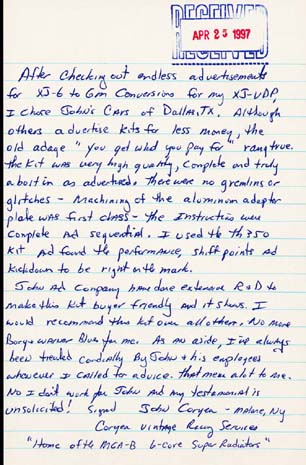 RECEIVED
APR 25 1997
RECEIVED
After Checking out endless advertisements
for XJ-6 to Gm Conversions for my XJ-VDP,
I chose John's Cars of Dallas, Tx. Although
others advertise kits for less money, the
old adage "you get what you pay for" rang true.
the Kit was very high quality, Complete and truly
a bolt in as advertised. There were no gremlins or
glitches - Machining of the aluminum adapter
plate was first class - the Instructions were
Complete Ad sequential. I used the th350
Kit Ad found the performance, shift points Ad
Kickdown to be right on the mark.
John Ad Company have done extensive R+D to
make this kit buyer friendly and it shows. I
would recommend this kit over all others. No more
Borg-warner Blues for me. As an aside, I've always
been treated Cordially By John + his employees
whenever I called for advice. that means alot to me.
No I don't work for John Ad my testamonial is
unsolicited! Signed John Coryea - malone, Ny
Coryea vintage Racing Services
"Home of the MGA-B 6-core Super Radiators"